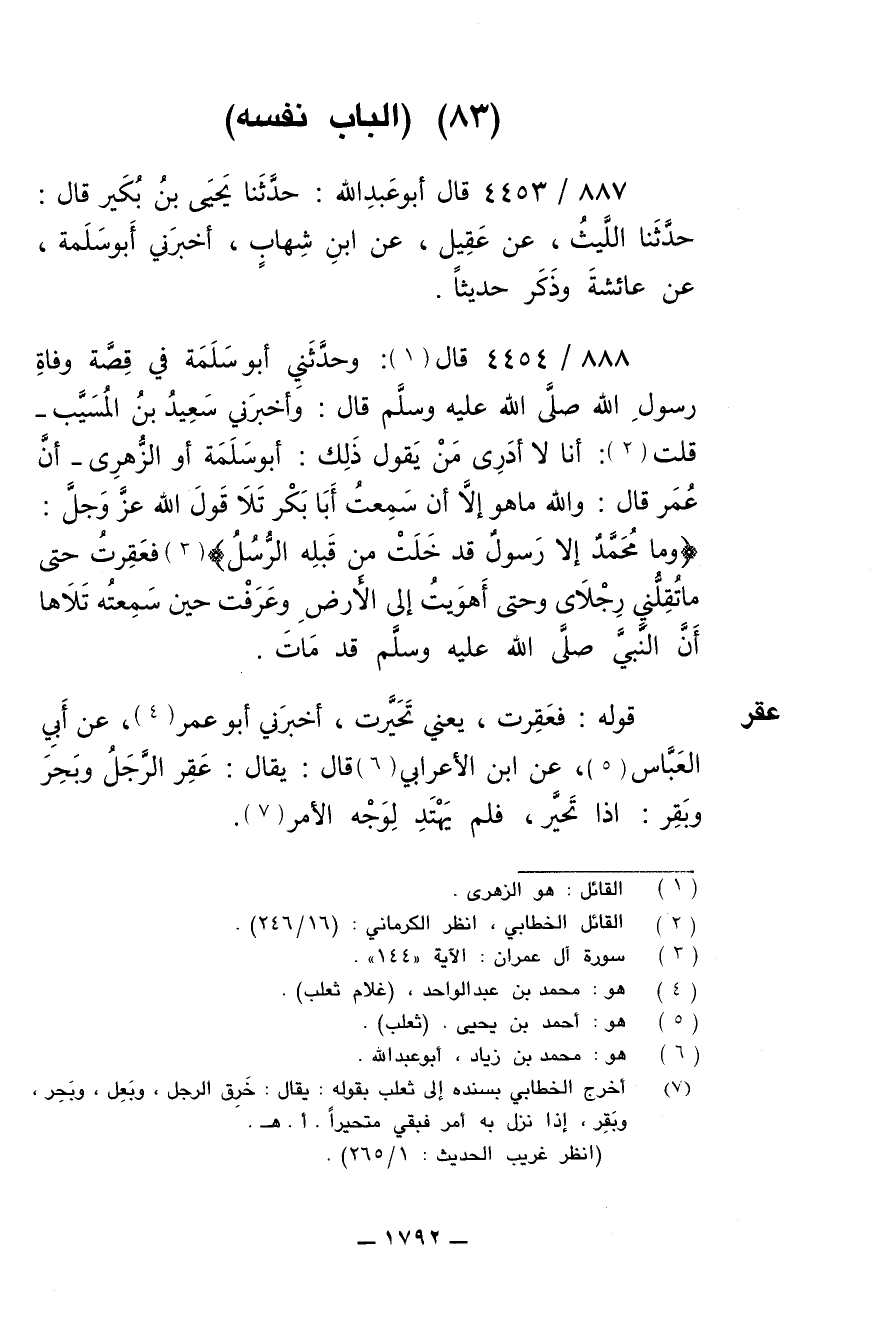 (٨٣) (الباب نفسه)
٨٨٧ / ٤٤٥٣ قال أبوعَبدِالله : حدَّثَنا يَحيَى بنُ بُكَير قال :
حدَّثَنا اللَّيثُ ، عن عَقِيل ، عن ابنِ شِهابٍ ، أخبرَني أَبوسَلَمة ،
عن عائشةَ وذَكَر حديثاً .
٨٨٨ / ٤٤٥٤ قال(١): وحدَّثَنِي أبو سَلَمَة في قِصَّة وفاةِ
رسولِ الله صلَّى الله عليه وسلَّم قال : وأخبرَني سَعِيدُ بنُ المُسَيَّب ـ
قلت(٢): أنا لا أدَرِى مَنْ يَقول ذَلِك : أبوسَلَمة أو الزُّهرِى ـ أنَّ
عُمَر قال : والله ماهو إلاَّ أن سَمِعتُ أَبَا بَكْر تَلَا قَولَ الله عزَّ وَجلَّ :
﴿وما مُحَمَّدٌ إلا رَسولٌ قد خَلَتْ من قَبلِه الرُّسُلُ﴾(٣)فعَقِرتُ حتى
ماتُقِلُّني رِجْلاَى وحتى أَهوَيتُ إلى الأَرضِ وعَرَفْت حين سَمِعتُه تَلَاها
أَنَّ النَّبيَّ صلَّى الله عليه وسلَّم قد مَاتَ .
عقر
قوله : فعَقِرت ، يعني تَحَيَّرت ، أخبرَني أبو عمر(٤)، عن أَبِي
العَبَّاس(٥)، عن ابن الأعرابي(٦)قال : يقال : عَقِر الرَّجَلُ وبَحِرَ
وبَقِر : اذا تَحيَّر ، فلم يَهْتَدِ لِوَجْه الأمر(٧).
(١) القائل : هو الزهرى .
(٢) القائل الخطابي ، انظر الكرماني : (٢٤٦/١٦) .
(٣) سورة آل عمران : الآية «١٤٤» .
(٤) هو : محمد بن عبدالواحد ، (غلام ثعلب) .
(٥) هو : أحمد بن يحيى . (ثعلب) .
(٦) هو : محمد بن زياد ، أبوعبدالله .
(٧) أخرج الخطابي بسنده إلى ثعلب بقوله : يقال : خَرِق الرجل ، وبَعِل ، وبَحِر ،
وبَقِر ، إذا نزل به أمر فبقي متحيراً . أ . هـ .
(انظر غريب الحديث : ٢٦٥/١) .
ـ ١٧٩٢ ـ